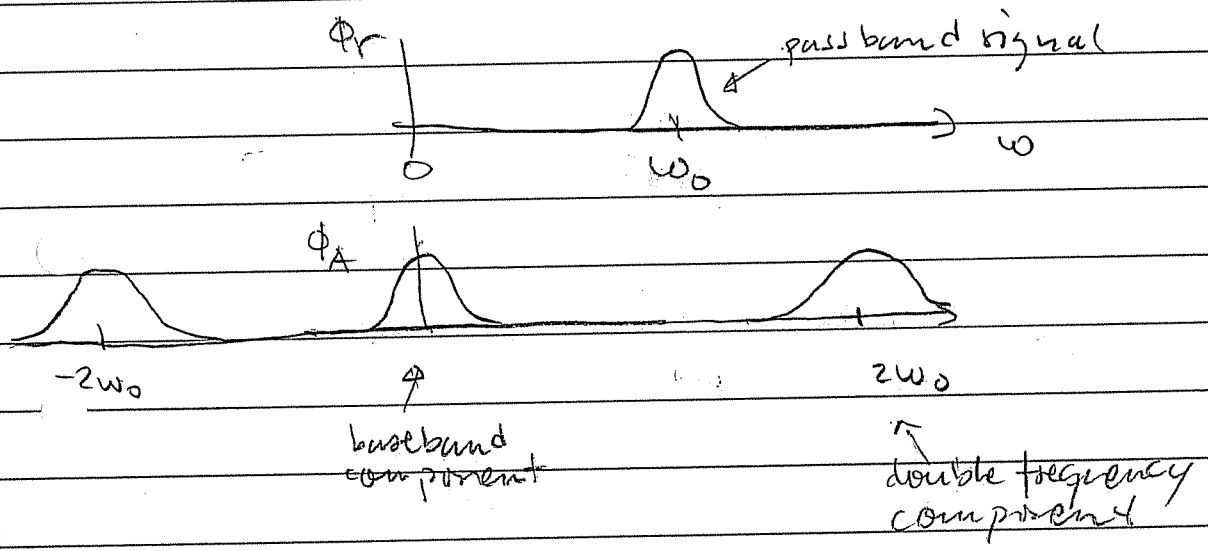 Φr
passband signal
0
ω0
ω
ΦA
-2ω0
2ω0
baseband
component
double frequency
component